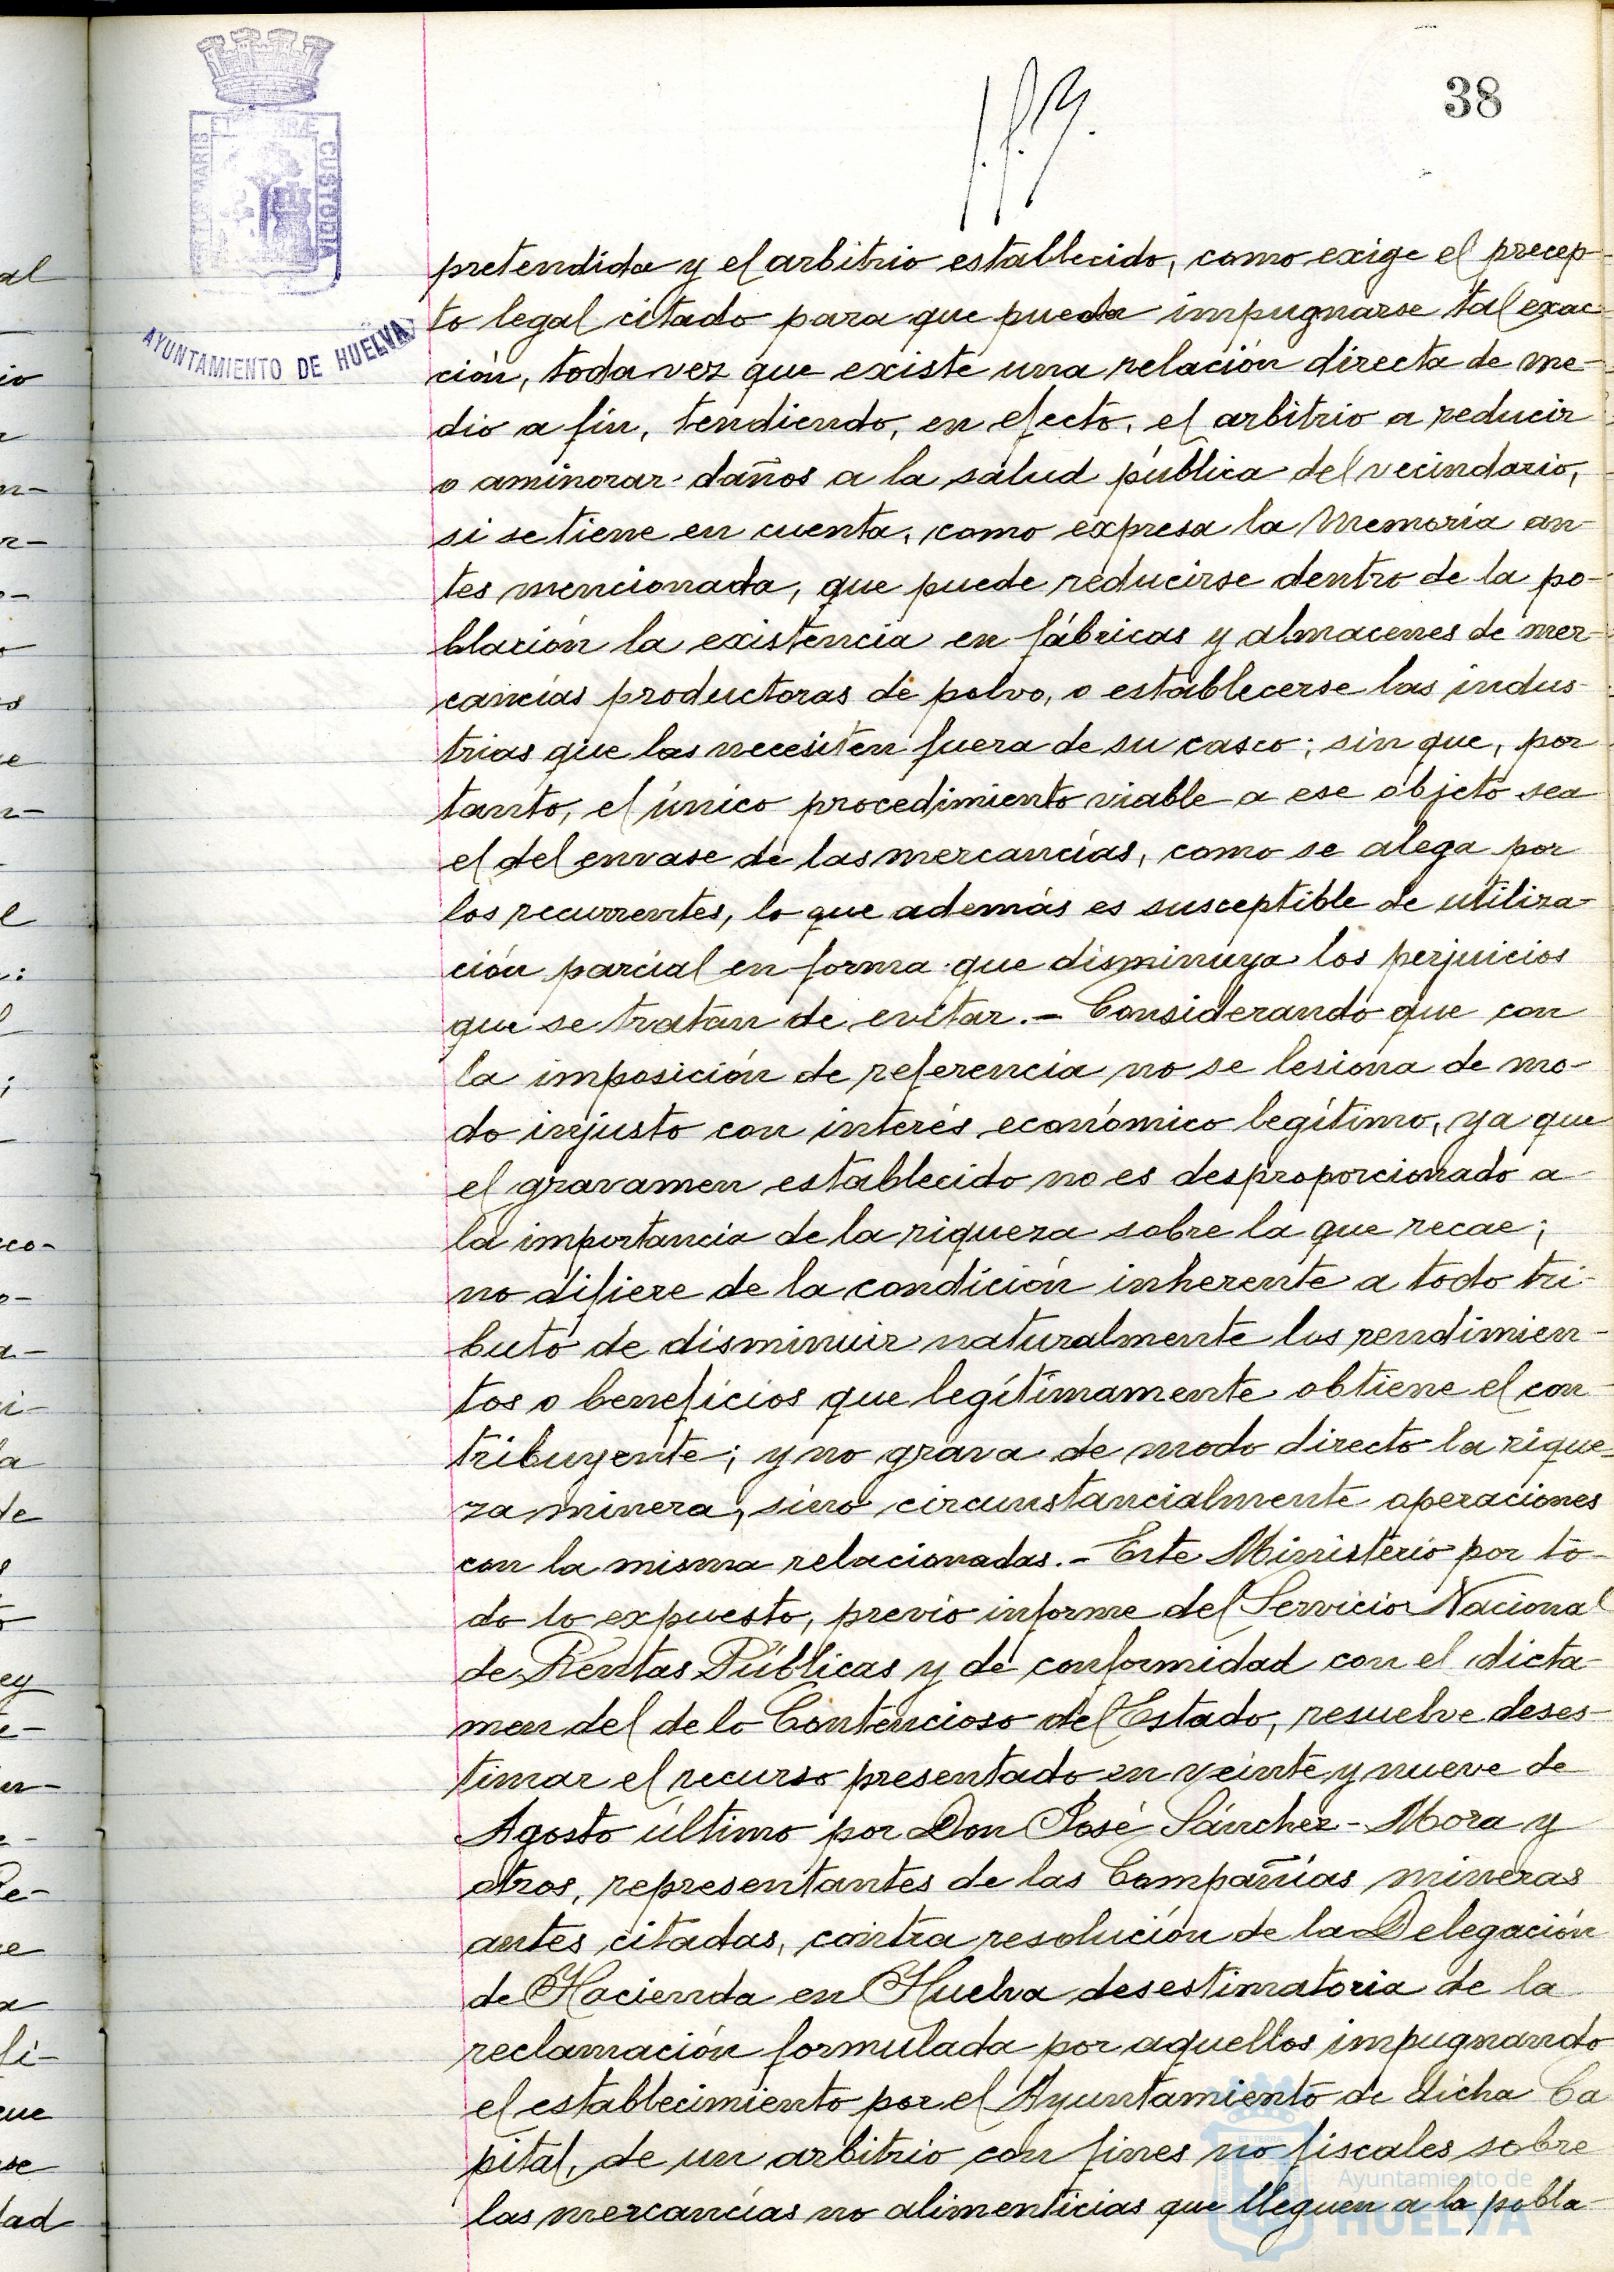 38
PORTUS MARIS ET TERRAE CUSTODIA
AYUNTAMIENTO DE HUELVA
pretendida y el arbitrio establecido, como exige el precep-
to legal citado para que pueda impugnarse tal exac-
ción, toda vez que existe una relación directa de me-
dio a fin, tendiendo, en efecto, el arbitrio a reducir
o aminorar daños a la salud pública del vecindario,
si se tiene en cuenta, como expresa la Memoria an-
tes mencionada, que puede reducirse dentro de la po-
blación la existencia en fábricas y almacenes de mer-
cancías productoras de polvo, o establecerse las indus-
trias que las necesiten fuera de su casco; sin que, por
tanto, el único procedimiento viable a ese objeto sea
el del envase de las mercancías, como se alega por
los recurrentes, lo que además es susceptible de utiliza-
ción parcial en forma que disminuya los perjuicios
que se tratan de evitar.- Considerando que con
la imposición de referencia no se lesiona de mo-
do injusto con interés económico legítimo, ya que
el gravamen establecido no es desproporcionado a
la importancia de la riqueza sobre la que recae;
no difiere de la condición inherente a todo tri-
buto de disminuir naturalmente los rendimien-
tos o beneficios que legítimamente obtiene el con-
tribuyente; y no grava de modo directo la rique-
za minera, sino circunstancialmente operaciones
con la misma relacionadas.- Este Ministerio por to-
do lo expuesto, previo informe del Servicio Nacional
de Rentas Públicas y de conformidad con el dicta-
men del de lo Contencioso del Estado, resuelve deses-
timar el recurso presentado en veinte y nueve de
Agosto último por Don José Sánchez-Mora y
otros, representantes de las Compañías mineras
antes citadas, contra resolución de la Delegación
de Hacienda en Huelva desestimatoria de la
reclamación formulada por aquellos impugnando
el establecimiento por el Ayuntamiento de dicha Ca
pital, de un arbitrio con fines no fiscales sobre
las mercancías no alimenticias que lleguen a la pobla-
Ayuntamiento de
HUELVA